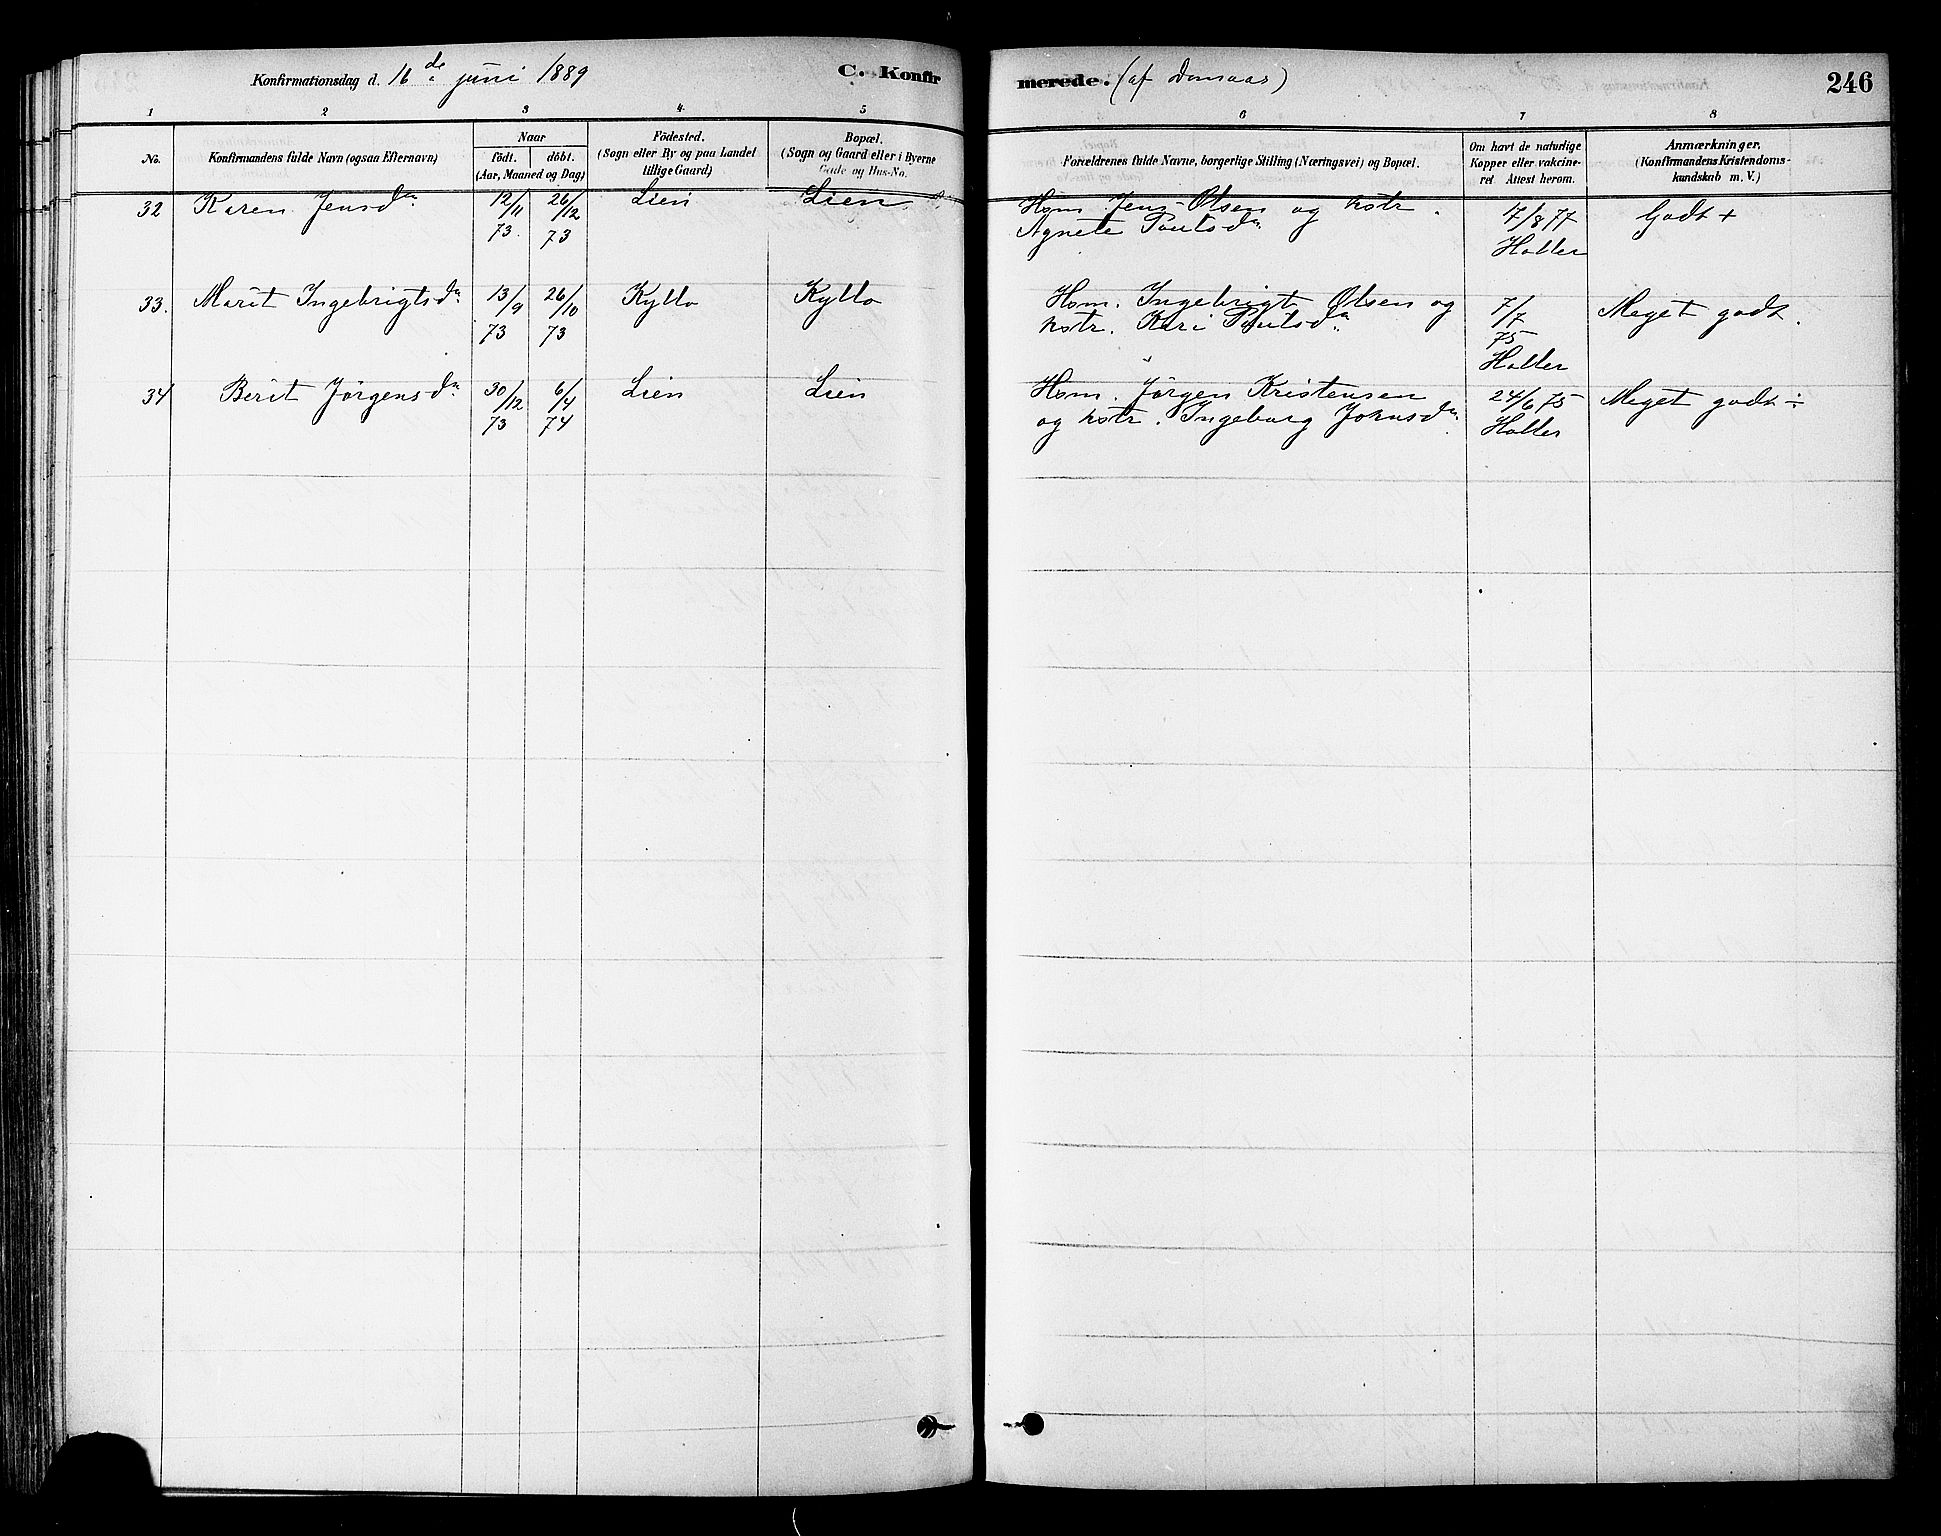 Konfirmationsdag d. 16de juni 1889
C. Konfirmerede. (af
246
1 2 3 4 5 6 7 8
No.
Konfirmandens fulde Navn (ogsaa Efternavn)
Naar
födt. döbt.
(Aar, Maaned og Dag)
Födested.
(Sogn eller By og paa Landet
tillige Gaard)
Bopæl.
(Sogn og Gaard eller i Byerne
Gade og Hus-No.
Forældrenes fulde Navne, borgerlige Stilling (Næringsvei) og Bopæl.
Om havt de naturlige
Kopper eller vakcine-
ret. Attest herom.
Anmærkninger.
(Konfirmandens Kristendoms-
kundskab m. V.)
32 Karen Jensdn 12/11 73. 26/12 73 Lien Lien
Hom. Jens Olsen og kstr.
Agnete Poulsdn
17/8 77
Haller
Godt +
33. Marit Ingebrigtsdn 13/9 73 26/10 73 Kyllo Kyllo
Hom. Ingebrigt Olsen og
kstr. Kari Poulsdn
7/7
75
Haller
Meget godt.
34 Berit Jørgensdn 30/12 73 6/4 74 Lien Lien
Hom. Jørgen Kristensen
og kstr. Ingeborg Johnsdn
24/6 75
Haller
Meget godt ÷